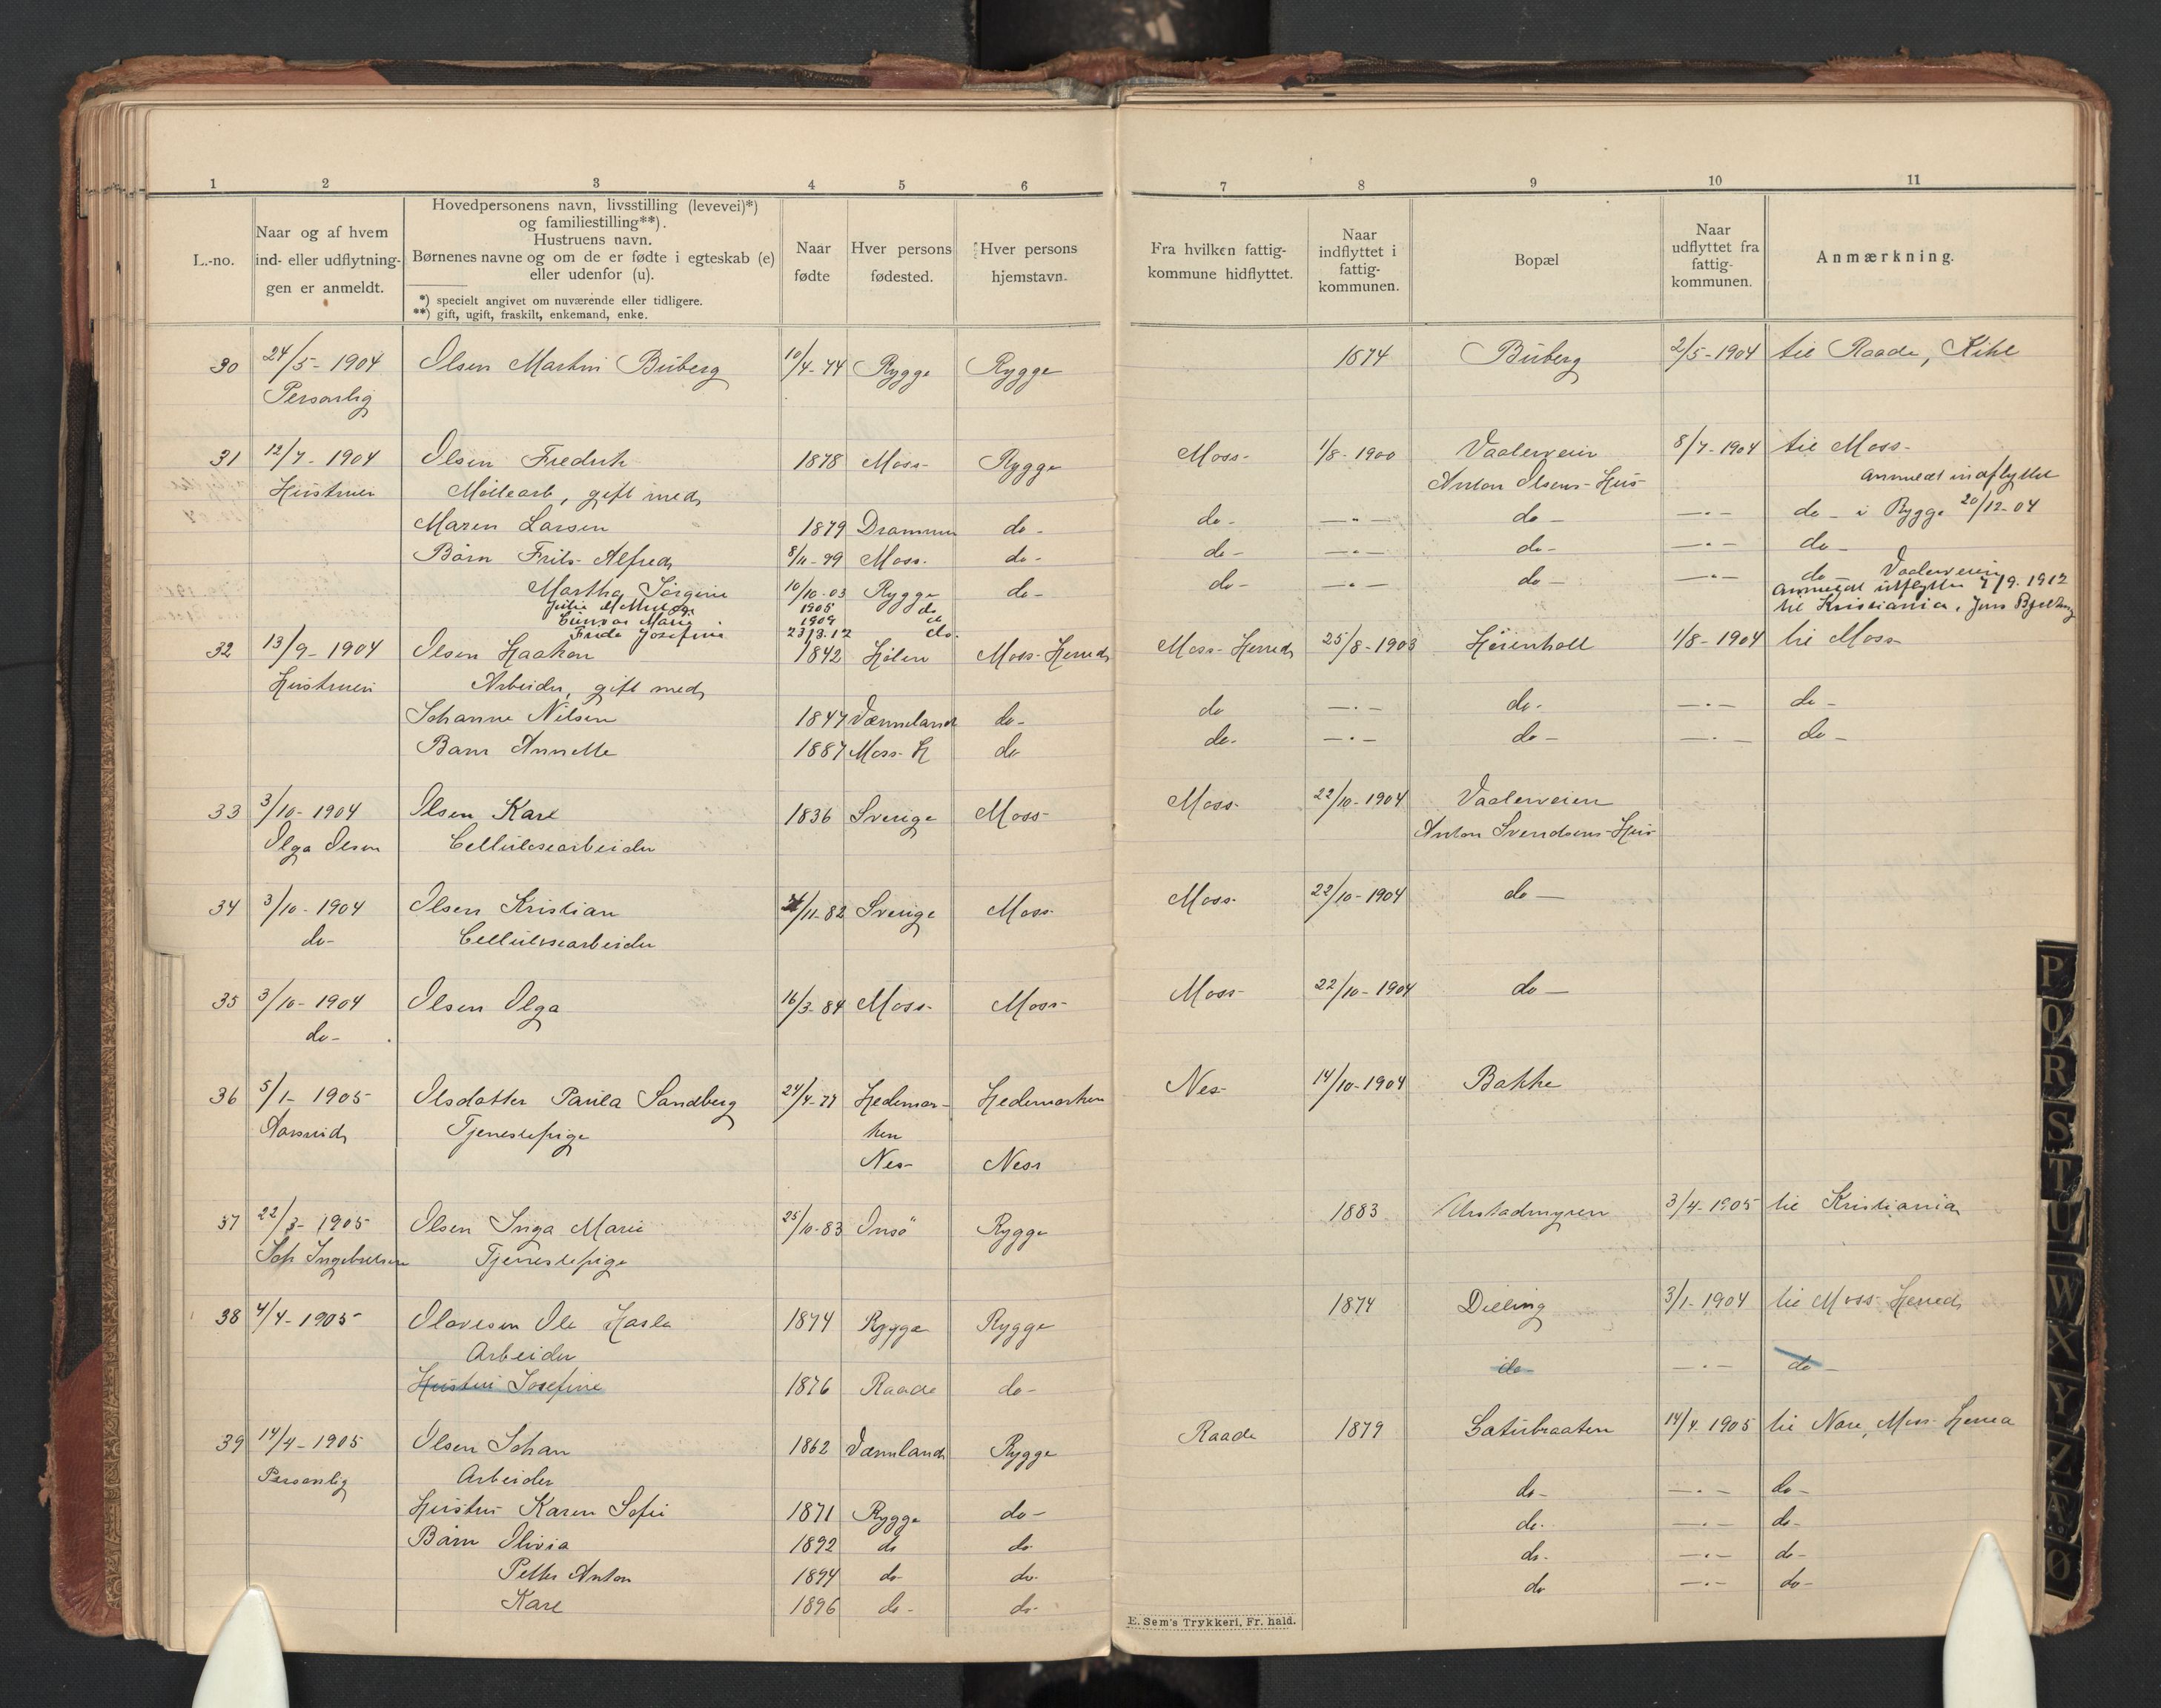 1 2 3 4 5 6 7 8 9 10 11
L.-no.
Naar og af hvem
ind- eller udflytnin-
gen er anmeldt.
Hovedpersonens navn, livsstilling (levevei)*)
og familiestilling**).
Hustruens navn.
Børnenes navne og om de er fødte i egteskab (e)
eller udenfor (u).
*) specielt angivet om nuværende eller tidligere.
**) gift, ugift, fraskilt, enkemand, enke.
Naar
fødte
Hver persons
fødested.
Hver persons
hjemstavn.
Fra hvilken fattig-
kommune hidflyttet.
Naar
indflyttet i
fattig-
kommunen.
Bopæl
Naar
udflyttet fra
fattig-
kommunen.
Anmærkning.
30 24/5-1904 Olsen Martin Buberg 10/4-74 Rygge Rygge 1874 Buberg 2/5-1904 til Raade, Kihl
Personlig
31 12/7-1904 Olsen Fredrik 1878 Moss- Rygge Moss- 1/8-1900 Vaalerveien 8/7-1904 til Moss-
Hustruen Møllearb, gift med Anton Olsens-Hus- anmeldt indflyttet
Maren Larsen 1879 Drammen do- do- —„— do- —„— do- i Rygge 20/12-04
Børn Frits Alfred 8/11-99 Moss- do- do- —„— do- —„— do-
Martha Jørgine 10/10-03 Rygge do- do- —„— do- —„— do- Vaalerveien
1905 do anmeldt utflyttet 7/9.1912
Gunvor Marie 1909 do til Kristiania,
Frida Josefine 23/3.12 do.
32 13/9-1904 Olsen Haakon 1842 Hølen Moss-Herred Moss-Herred 25/8-1903 Høienholt 1/8-1904 til Moss
Hustruen Arbeider, gift med
Johanne Nilsen 1847 Værmeland do- do —„— do- —„— do-
Barn Annette 1887 Moss-H do do- —„— do- —„— do-
33 3/10-1904 Olsen Karl 1836 Sverige Moss- Moss- 22/10-1904 Vaalerveien
Olga Olsen Cellulosearbeider Anton Svendsens-Hus-
34 3/10-1904 Olsen Kristian /11-82 Sverige Moss- Moss- 22/10-1904 do-
do- Cellulosearbeider
35 3/10-1904 Olsen Olga 16/3-84 Moss- Moss- Moss- 22/10-1904 do-
do-
36 5/1-1905 Olsdatter Paula Sandberg 24/4-77 Hedemar- Hedemarken Nes- 14/10-1904 Bakke
Tjenestepige ken
Nes- Ness
37 22/3-1905 Olsen Inga Marie 25/10-83 Onsö Rygge 1883 3/4-1905 til Kristiania
Joh Ingebretsen Tjenestepige
38 4/4-1905 Olavesen Ole Hasle 1874 Rygge Rygge 1874 Dilling 3/1-1904 til Moss-Herred
Arbeider
Hustru Josefine 1876 Raade do- do- —„— do-
39 14/4-1905 Olsen Johan 1862 Værmland Rygge Raade 1879 Laturbraaten 14/4-1905 til Nore, Moss-Herred
Personlig Arbeider
Hustru Karen Sofie 1871 Rygge do- do- —„— do-
Børn Olivia 1892 do do- do- —„— do-
Petter Anton 1894 do- do- do- —„— do-
Karl 1896 do- do- do —„— do-
E. Sem's Trykkeri, Fr. hald.
P
Q
R
S
T
U
W
X
Y
Z
Æ
Ø